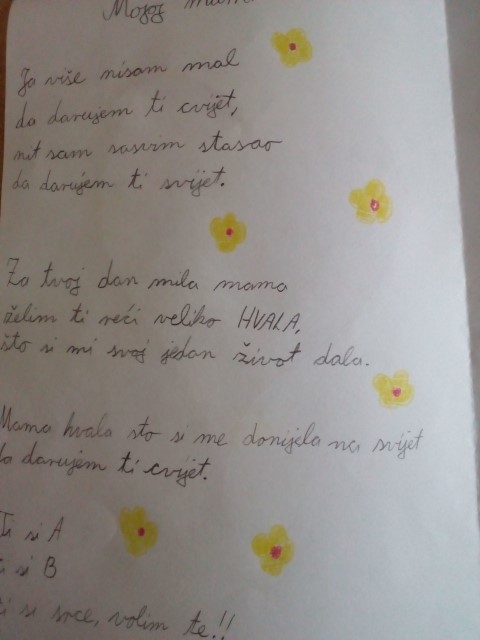 Mojoj mami
Ja više nisam mal
da darujem ti cvijet,
nit sam sasvim stasao
da darujem ti svijet.
Za tvoj dan mila mama
želim ti reći veliko HVALA,
što si mi svoj jedan život dala.
Mama hvala sto si me donijela na svijet
da darujem ti cvijet.
Ti si A
si B
ti si srce, volim te!!